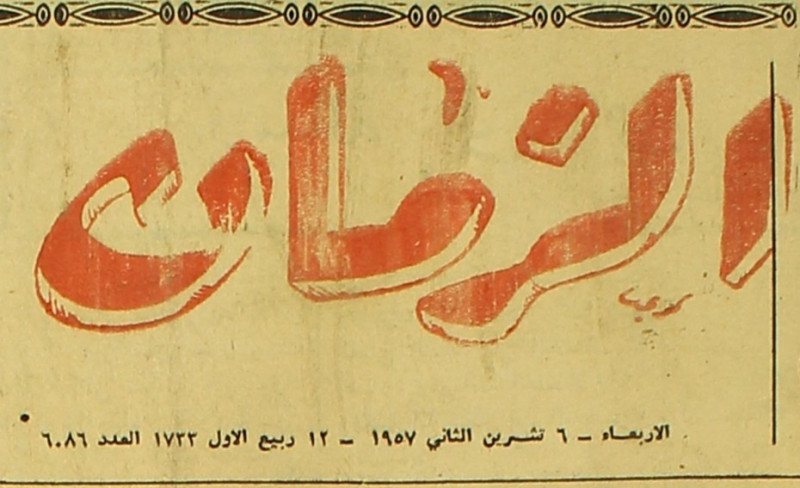 الزمان
الاربعاء - ٦ تشرين الثاني ١٩٥٧ - ١٢ ربيع الاول ١٧٣٣ العدد ٦٠٨٦